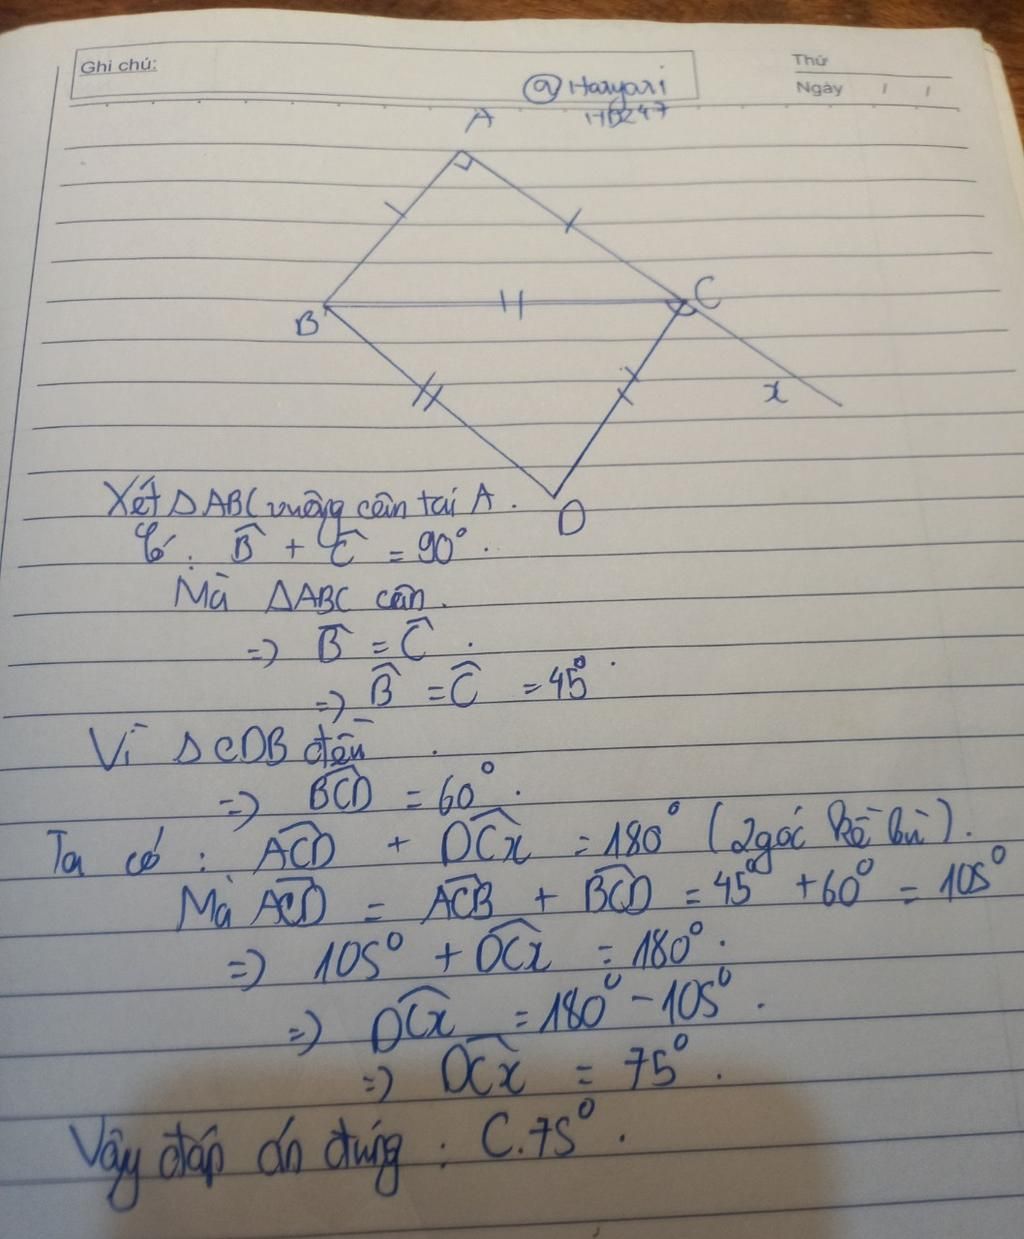 Ghi chú:
Thứ
Ngày / /
@Haryari
HD247
A
B
C
x
D
Xét Δ ABC vuông cân tại A.
Có: B̂ + Ĉ = 90°.
Mà ΔABC cân.
=> B̂ = Ĉ.
=> B̂ = Ĉ = 45°.
Vì Δ CDB đều.
=> B̂CD = 60°.
Ta có: ÂCD + D̂Cx = 180° (2 góc kề bù).
Mà ÂCD = ÂCB + B̂CD = 45° + 60° = 105°
=> 105° + D̂Cx = 180°.
=> D̂Cx = 180° - 105°.
=> D̂Cx = 75°.
Vậy đáp án đúng: C. 75°.